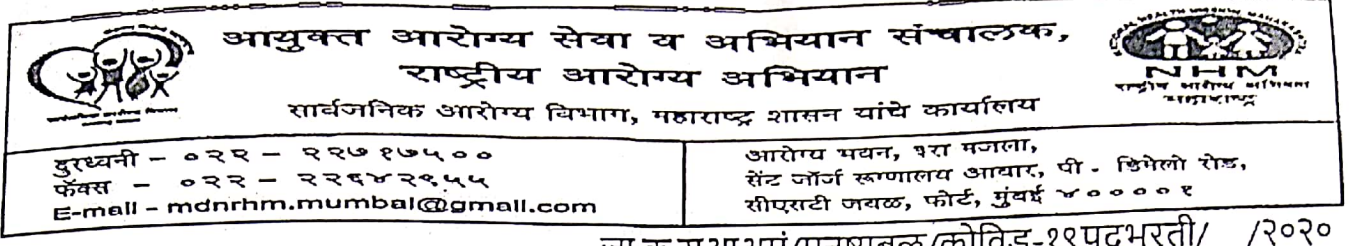 आयुक्त आरोग्य सेवा व अभियान संचालक,
राष्ट्रीय आरोग्य अभियान
सार्वजनिक आरोग्य विभाग, महाराष्ट्र शासन यांचे कार्यालय
NHM
राष्ट्रीय आरोग्य अभियान
महाराष्ट्र
दुरध्वनी – ०२२ – २२७१७५००
फॅक्स – ०२२ – २२६४२९५५
E-mail – mdnrhm.mumbai@gmail.com
आरोग्य भवन, ३रा मजला,
सेंट जॉर्ज रूग्णालय आवार, पी - डिमेलो रोड,
सीएसटी जवळ, फोर्ट, मुंबई ४००००१
/कोविड-१९पदभरती/ /२०२०